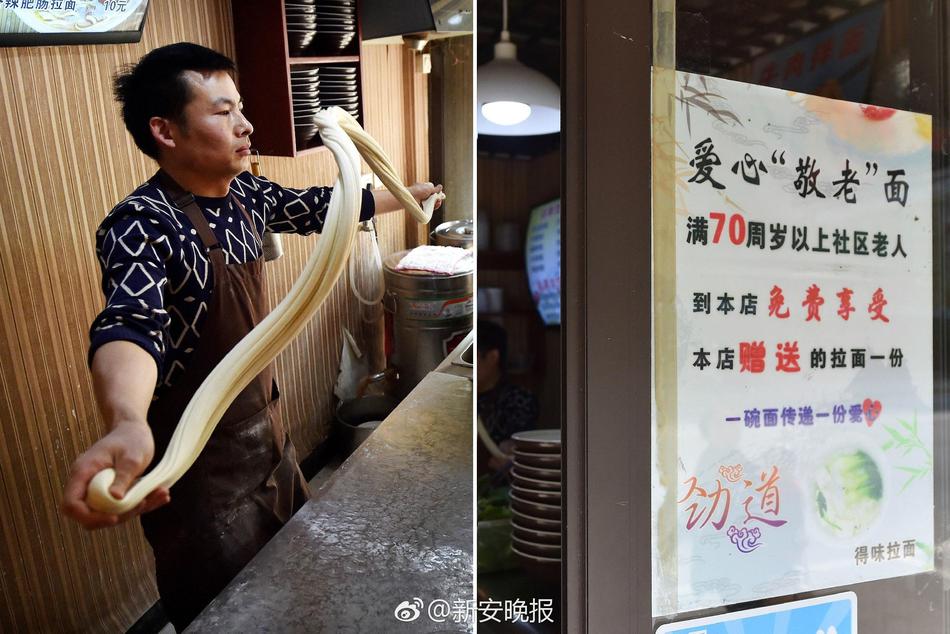 辣肥肠拉面 10元
爱心“敬老”面
满70周岁以上社区老人
到本店免费享受
本店赠送的拉面一份
一碗面传递一份爱心
劲道
得味拉面
@新安晚报